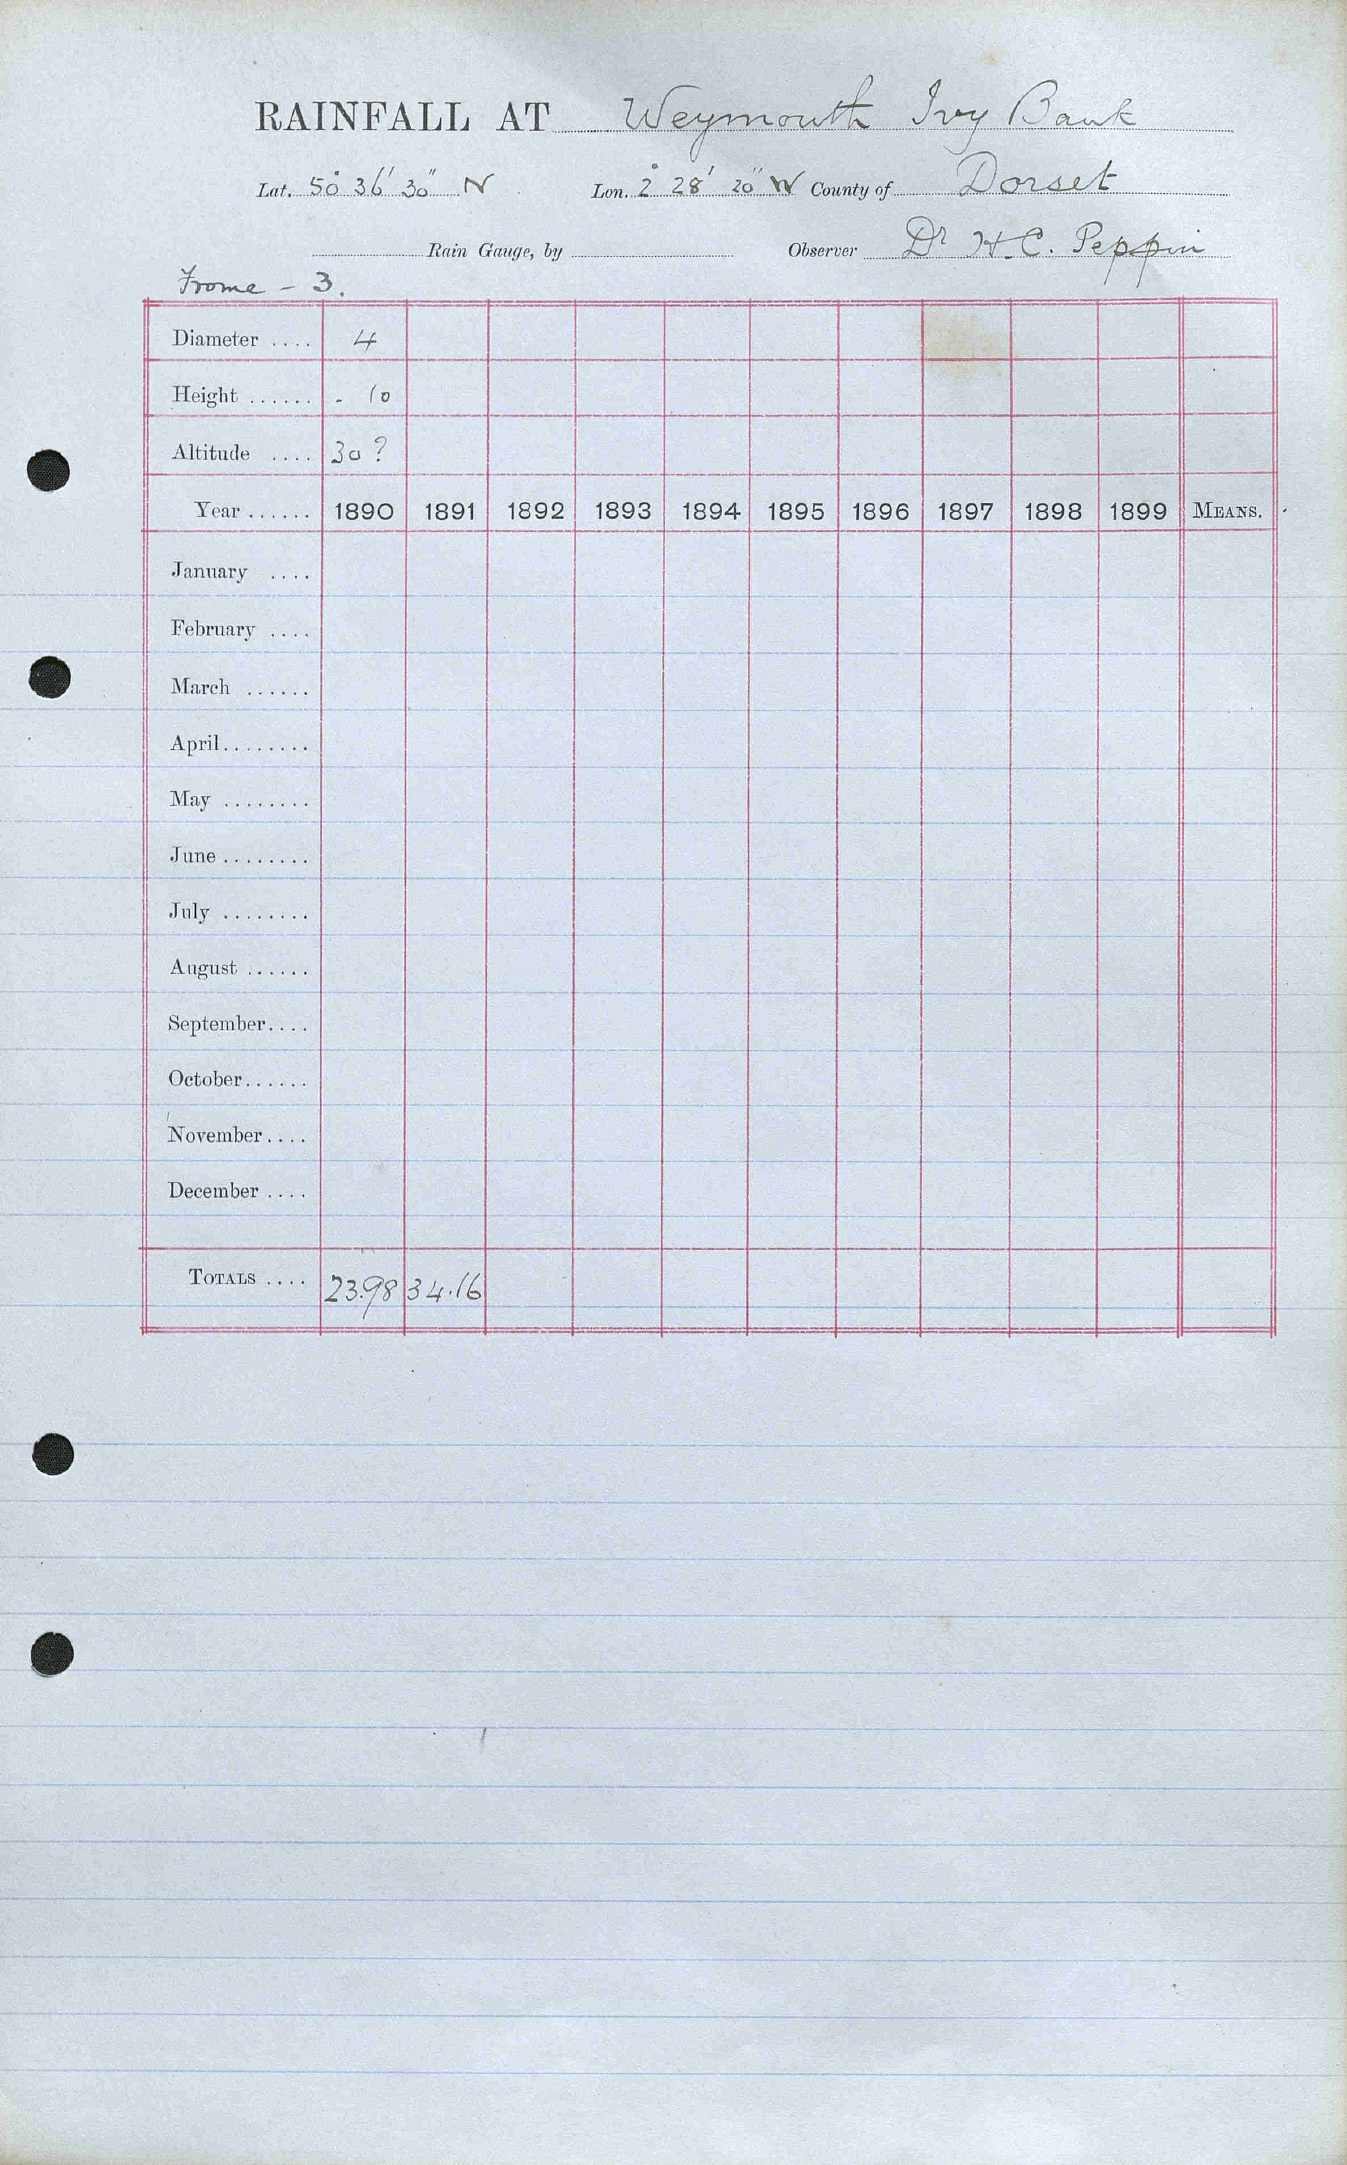 RAINFALL AT Weymouth Ivy Bank
Lat. 50° 36' 30" N Lon. 2° 28' 20" W County of Dorset
Rain Gauge, by Observer Dr H. C. Peppin
Frome - 3.
Diameter .... 4
Height ...... - 10
Altitude .... 30 ?
Year ...... 1890 1891 1892 1893 1894 1895 1896 1897 1898 1899 MEANS.
January ....
February ....
March ......
April ........
May ........
June ........
July ........
August ......
September ....
October ......
November ....
December ....
TOTALS .... 23.98 34.16